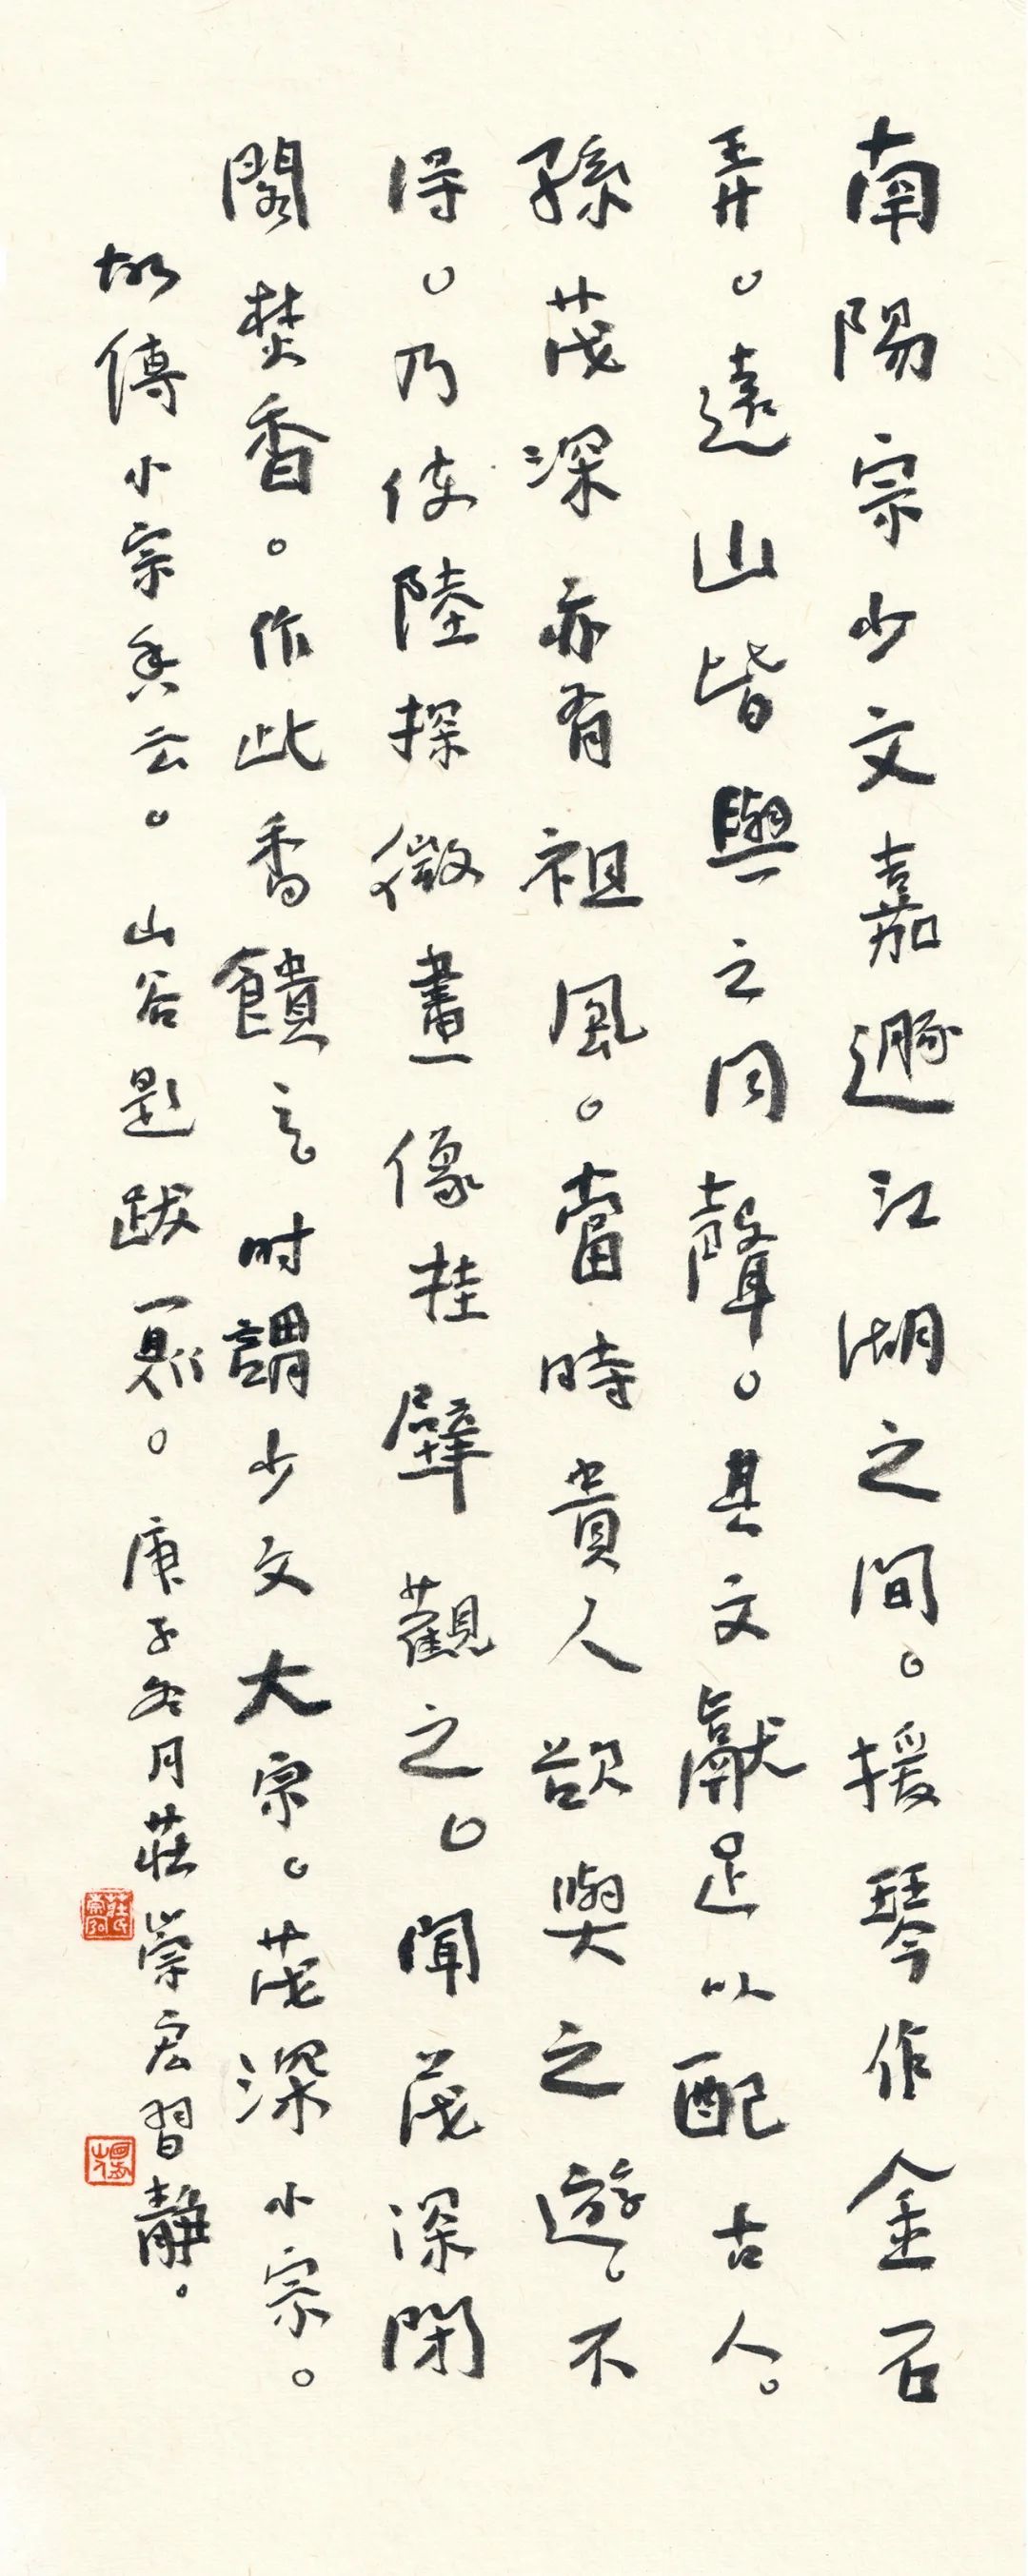 南陽宗少文嘉遯江湖之間。援琴作金石
弄。遠山皆與之同聲。其文獻足以配古人。
孫茂深亦有祖風。當時貴人欲與之遊。不
得。乃使陸探微畫像挂壁觀之。聞茂深閉
閣焚香。作此香饋之。时謂少文大宗。茂深小宗。
故傳小宗香云。山谷題跋一則。庚子冬月莊崇宏習静。